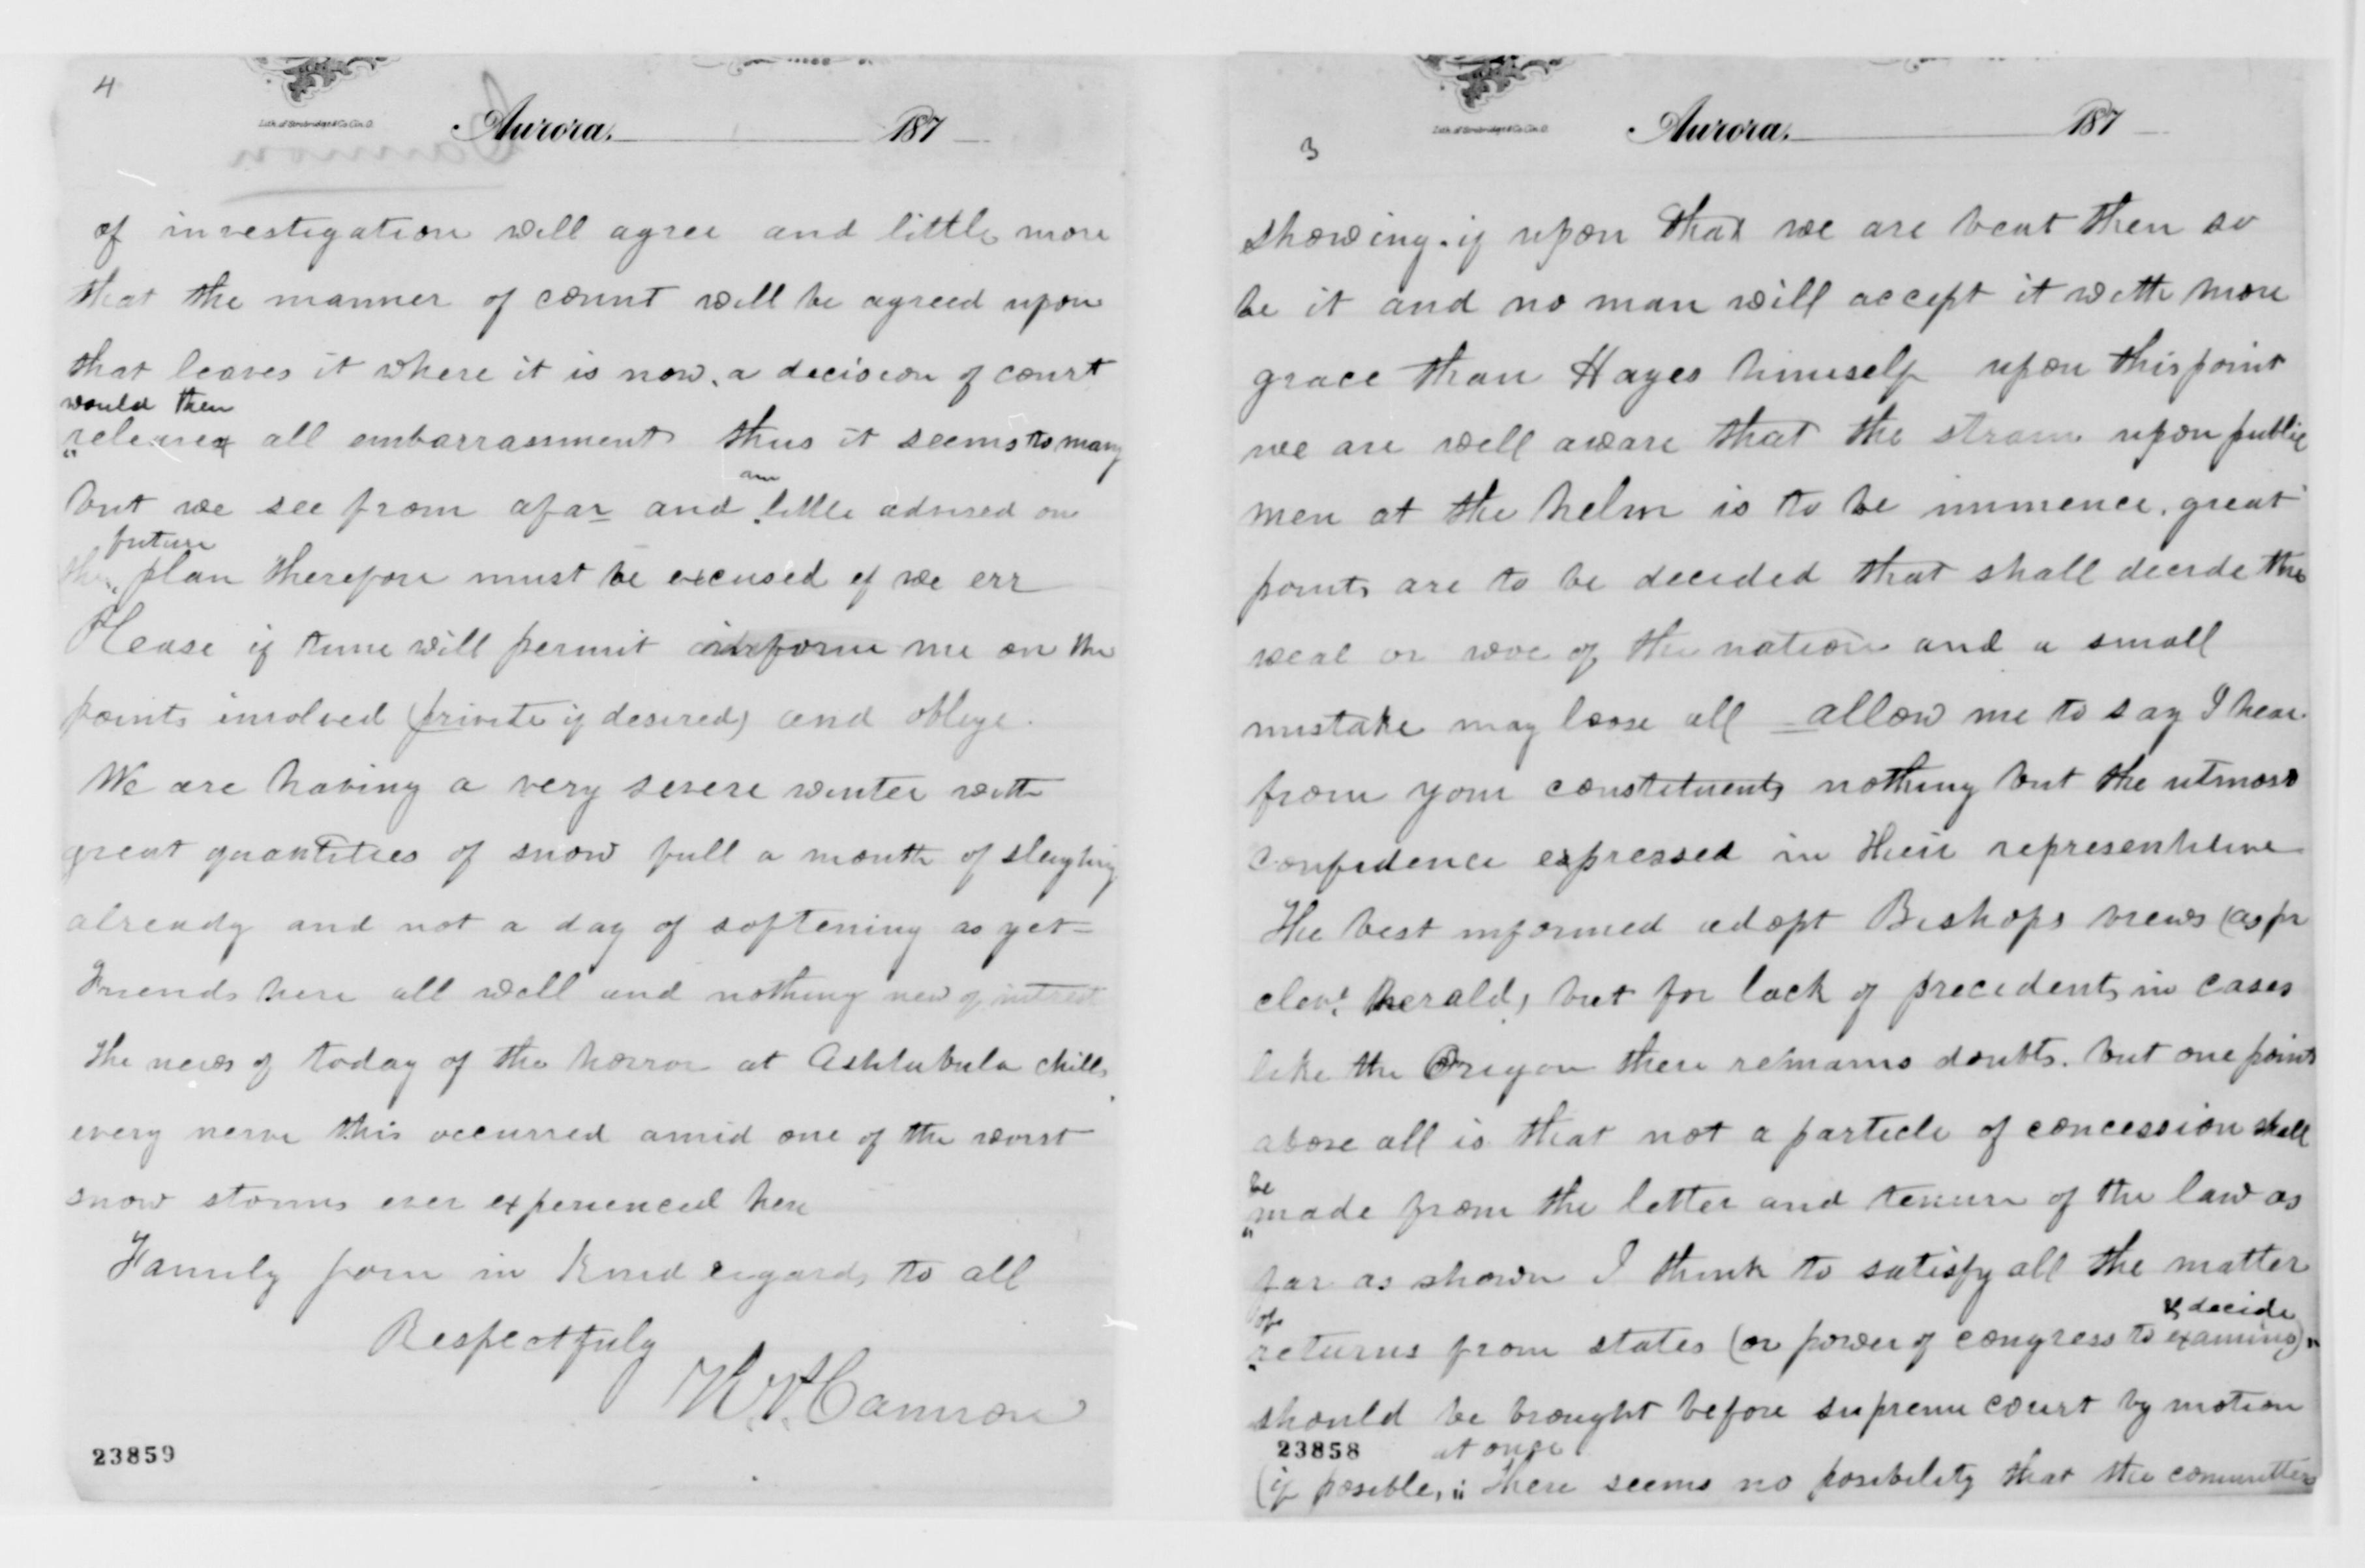 4
Lith. of Strobridge & Co. Cin. O.
Aurora, 187
of investigation will agree and little more
that the manner of count will be agreed upon
that leaves it where it is now. a decision of court
would then
all embarrassment thus it seems to many
am
but we see from afar and little advised on
future
the plan therefore must be excused if we err
Please if time will permit inform me on the
points involved (private if desired) and oblige.
We are having a very severe winter with
great quantities of snow full a month of sleighing
already and not a day of softening as yet =
Friends here all well and nothing new of intrest
The news of today of the horror at Ashtabula chills
every nerve this occurred amid one of the worst
snow storms ever experienced here
Family join in kind regards to all
Respectfuly
Cannon
23859
3
Lith. of Strobridge & Co. Cin. O.
Aurora, 187
showing. if upon that we are beat then so
be it and no man will accept it with more
grace than Hayes himself upon this point
we are well aware that the strain upon public
men at the helm is to be immence. great
points are to be decided that shall decide the
weal or woe of the nation and a small
mistake may loose all = allow me to say I hear
from your constituents nothing but the utmost
confidence expressed in their representitive
The best informed adopt Bishops views (as pr
clevd herald) but for lack of precedents in cases
like the Oregon there remains doubts. but one point
above all is that not a particle of concession shall
be
made from the letter and tenure of the law as
far as shown I think to satisfy all the matter
of & decide
returns from states (or power of congress to examine)
should be brought before supreme court by motion
23858 at once
(if posible, there seems no posibility that the committees